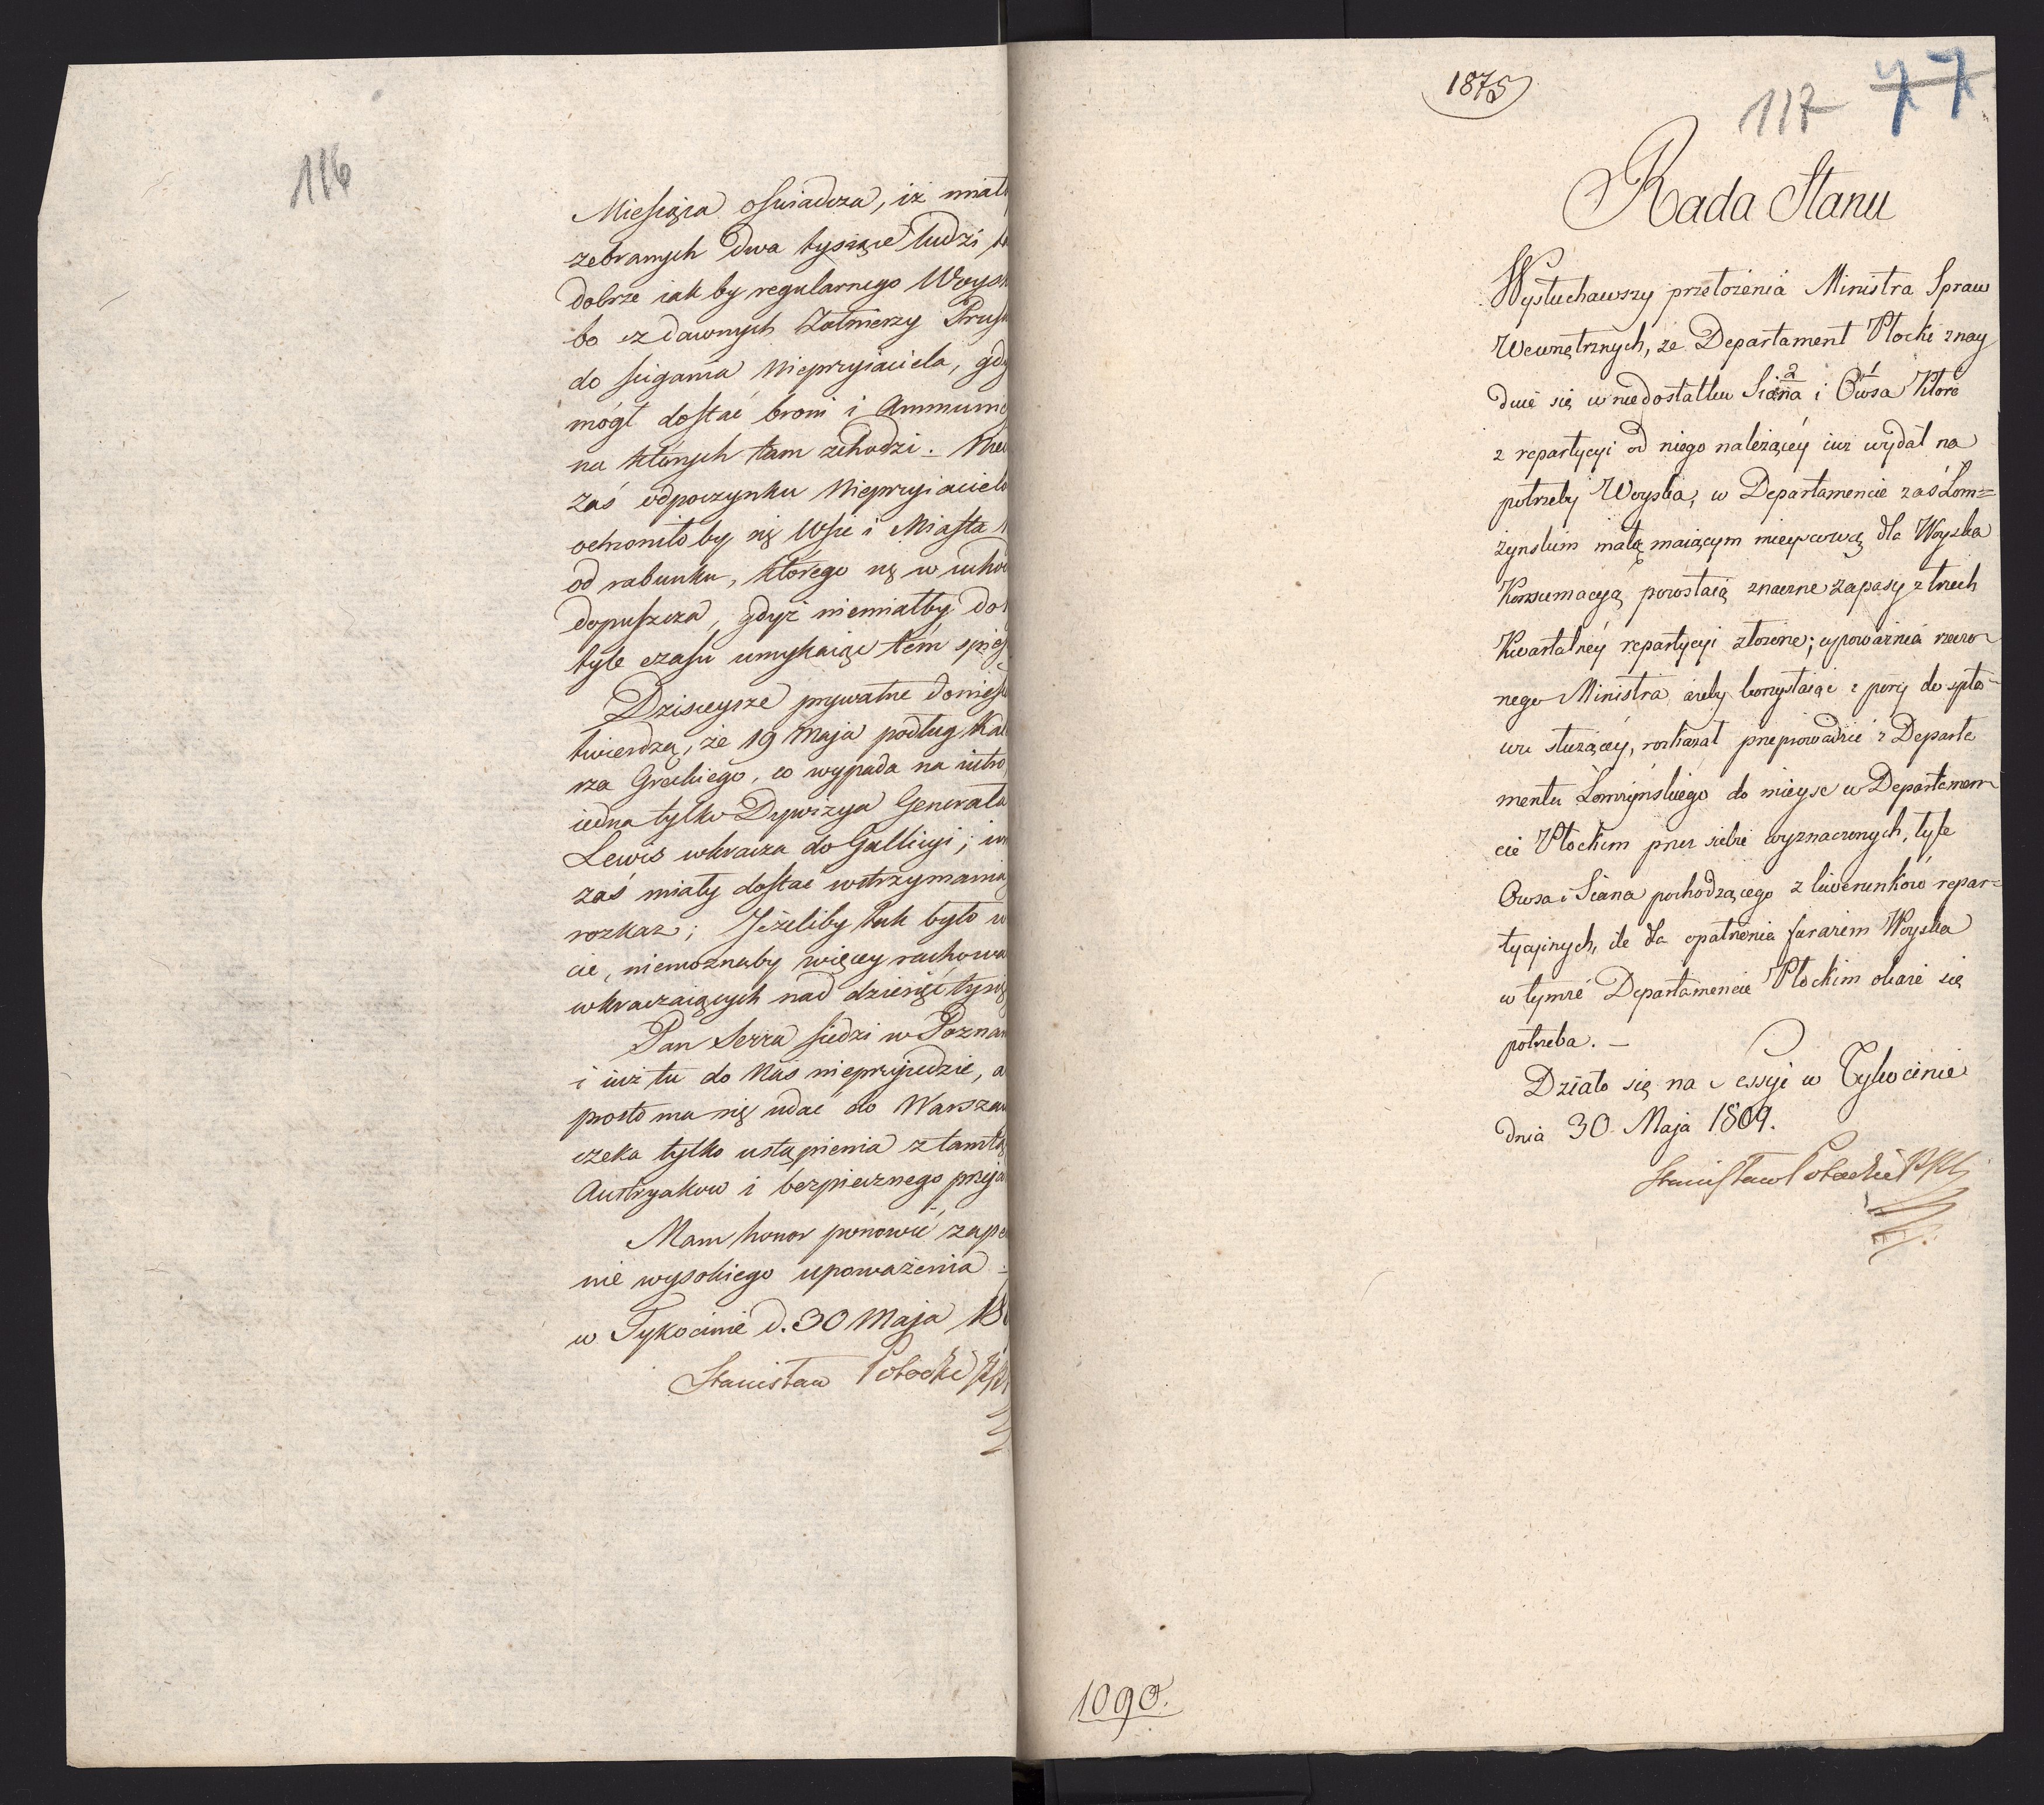 116
Miesiąca oświadcza, iż miał
zebranych dwa tysiące ludzi
dobrze iak by regularnego Woysk
bo z dawnych Żołnierzy Prusk
do ścigania Nieprzyiaciela, gdy
mógł dostać broni i Ammunic
na których tam zchodzi. –
Zaś odpoczynku Nieprzyiaciel
ochroniłoby się Wsie i Miasta
od rabunku, którego się w
dopuszcza, gdyż niemiałby do
tyle czasu umykaiąc tém spies
Dzisieysze prywatne donies
twierdzą, że 19 Maja podług Kal
rza Greckiego, co wypada na iutro
iedna tylko Dywizya Generała
Lewis wkracza do Gallicyi; in
zaś miały dostać wstrzymania
rozkaz; Jeżeliby tak było w
cie, niemożnaby więcey rachowa
wkraczaiących nad dziesięć tysię
Pan Serra siedzi w Poznan
i iuż tu do Nas nieprzyiedzie, a
prosto ma się udać do Warszaw
czeka tylko ustąpienia z tamtą
Austryakow i bezpiecznego przyja
Mam honor ponowić zape
nie wysokiego upoważenia –
w Tykocinie d. 30 Maja 18
Stanisław Potocki
1875
117 77
Rada Stanu
Wysłuchawszy przełożenia Ministra Spraw
Wewnętrznych, że Departament Płocki znay
duie się w niedostatku Siana 2 i Owsa 1 które
z repartycyi od niego należącéy iuż wydał na
potrzeby Woyska, w Departamencie zaś Łom=
żynskim małą maiącym mieyscową dla Woyska
Konsumacyą pozostaią znaczne zapasy z trzech
Kwartalnéy repartycyi złożone; upoważnia rzeczo
nego Ministra ażeby korzystaiąc z pory do spła-
wu służącéy, rozkazał przeprowadzić z Departa
mentu Łomżyńskiego do mieysc w Departamen
cie Płockim przez siebie wyznaczonych, tyle
Owsa i Siana pochodzącego z liwerunków repar=
tycyinych, ile dla opatrzenia furażem Woyska
w tymże Departamencie Płockim okaże się
potrzeba. –
Działo się na Sessyi w Tykocinie
dnia 30 Maja 1809.
Stanisław Potocki
1090.